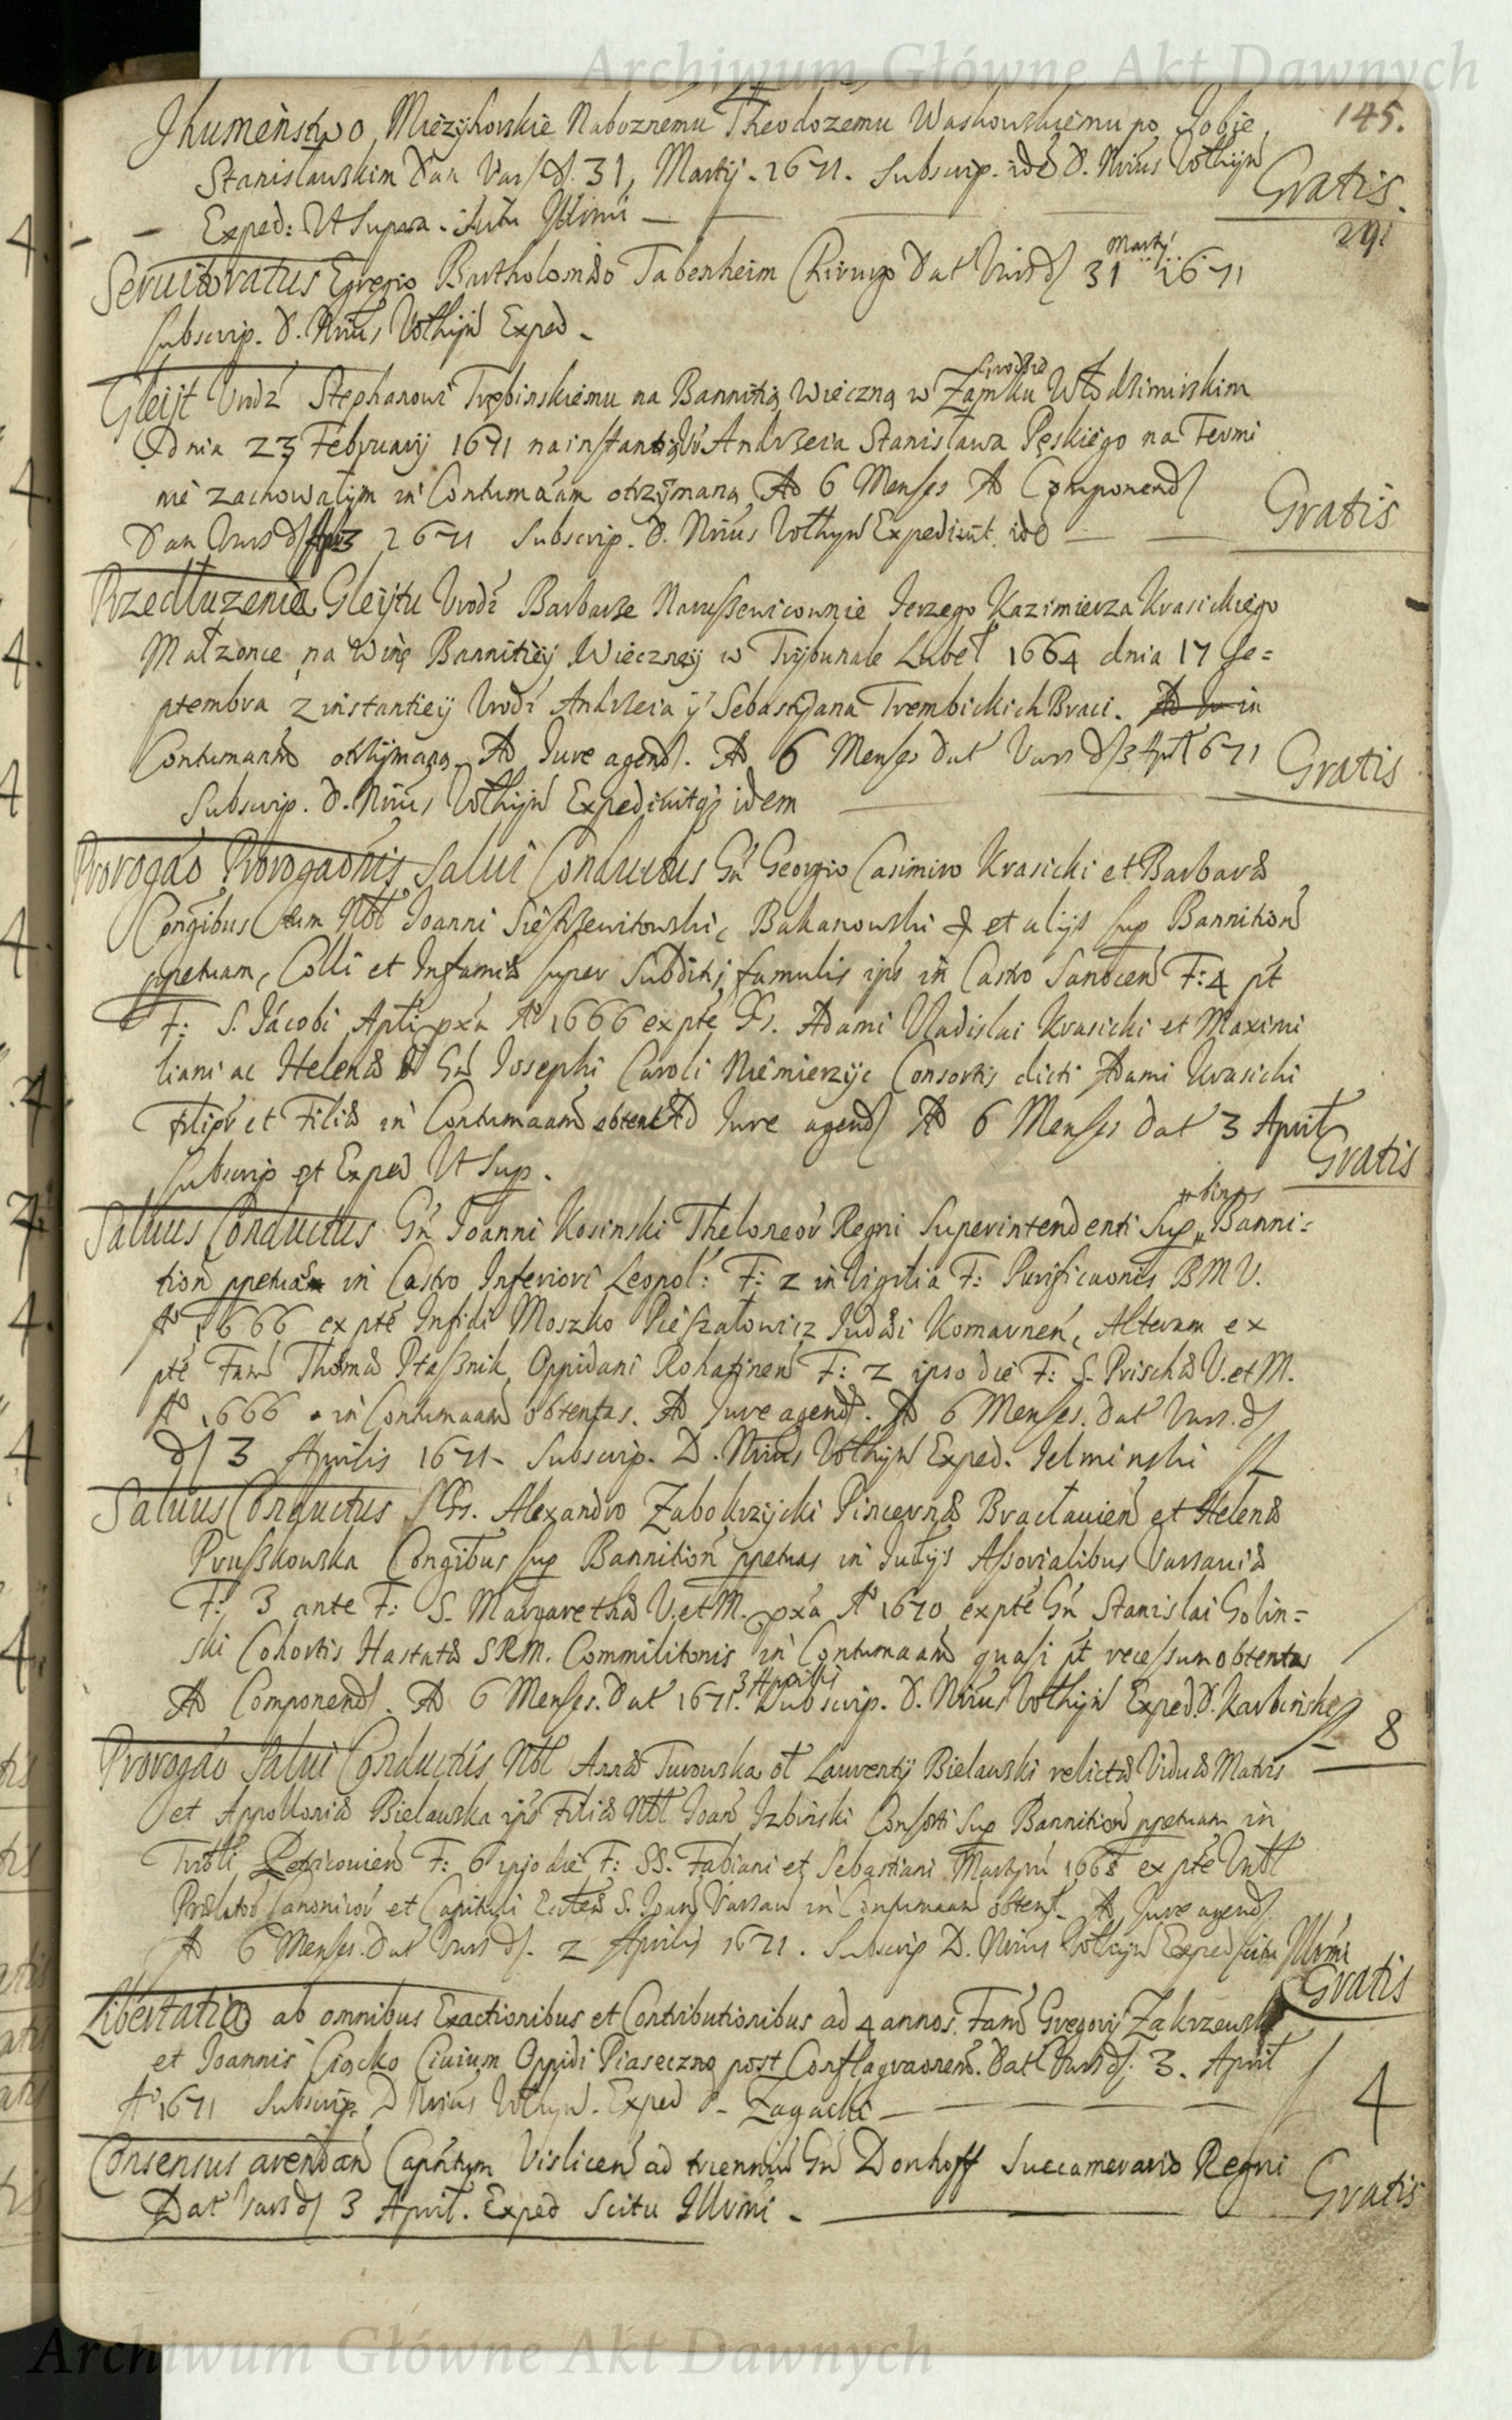 Archiwum Główne Akt Dawnych
145.
Jhumeństwo Mieżyhorskie Nabożnemu Theodozemu Waskowskiemu po Jobie
Stanisławskim Dan Vars d. 31, Martij. 1671. Subscrip. idē D. Nrius Vołhijn
Exped: Ut Supra. scitu Jllrimi Gratis.
291
Servitoratus Egregio Bartholomæo Tabenheim Chirurgo Dat Vars d 31 Martij 1671
Subscrip. D. Nrius Vołhijn Exped.
Gleijt Vrodź Stephanowi Trębinskiemu na Bannitią wieczną w Zamku Grodzie Włodzimirskim
dnia 23 Februarij 1671 na instantią Vr Andrzeia Stanisława Pęskiego na Termi
nie zachowałym in Contumaām otrzÿmaną Ad 6 Menses Ad Componend
Dan Vars d 3 1671 Subscrip. D. Nrius Vołhyn Expediuit idē Gratis
Przedłuzenie Gleijtu Vrodź Barbarze Naruszewicownie Jerzego Kazimierza Krasickiego
Małzonce na Winę Bannitieÿ Wieczneÿ w Trijbunale Lubel 1664 dnia 17 Se=
ptembra z instantieÿ Vrodź Andrzeia ÿ Sebastÿana Trembickich Braci. in
Contumaām otrzijmaną. Ad Jure agend. Ad 6 Menses Dat Vars d 3 Apr 1671 Gratis
Subscrip. D. Nrius Vołhijn Expediuitq idem
Prorogaō Prorogaōnis Salui Conductus Gń Georgio Casimiro Krasicki et Barbaræ
Congibus tum Nbl Joanni Bakanowski et alijs sup Bannition
ppetuam, Colli et Infamiæ super Subditis, famulis ips in Castro Sanocen F: 4 pt
F: S. Jacobi Apli pxa A° 1666 expte Gs. Adami Vladislai Krasicki et Maximi
liani ac Helenæ Gń Josephi Caroli Niemierzyc Consortis dicti Adami Krasicki
Filior et Filiæ in Contumaām obtent Ad Jure agend Ad 6 Menses Dat 3 April
Subscrip et Exped Ut Sup. Gratis
Saluus Conductus Gń Joanni Kosinski Theloneor Regni Superintendenti Sup binas Banni=
tion ppetuas in Castro Inferiori Leopol: F: 2 in Vigilia F: Purificaonis BMV.
A° 1666 ex pte Infidi Moszko Judæi Komarnen, Alteram ex
pte Fam Thomæ Ptasznik Oppidani Rohatinen F: 2 ipso die F: S. Priscæ V. et M.
A° 1666 in Contumaām obtentas. Ad Jure agend. Ad 6 Menses. Dat Vars. d
d 3 Aprilis 1671. Subscrip. D. Nrius Vołhijn Exped. Jelminski
Saluus Conductus Gs. Alexandro Zabokrzijcki Pincernæ Bracłauien et Helenæ
Pruszkowska Congibus sup Bannition ppetuas in Judijs Assorialibus Varsauiæ
F: 3 ante F: S. Margarethæ V. et M. pxa A° 1670 expte Gń Stanislai Golin=
ski Cohortis Hastatæ SRM. Commilitonis in Contumaām quasi pt recessum obtentas
Ad Componend. Ad 6 Menses. Dat 1671. 3 Aprilis Subscrip. D. Nrius Vołhijn Exped. D. Karbinski 8
Prorogaō Salui Conductus Nbl Annæ Turowska ol Laurentij Bielawski relictæ Viduæ Matris
et Appolloniæ Bielawska ips Filiæ Nbl Joan Izbinski Consorti Sup Bannition ppetuam in
Trbli Petricouien F: 6 ipso die F: SS. Fabiani et Sebastiani Martyru 1668 ex pte
Prælator Canonicor et Capituli Eccles S. Joan Varsau in Contumaam obtent. Ad Jure agend
Ad 6 Menses. Dat Vars d. 2 Aprilis 1671. Subscrip D. Nrius Vołhijn Exped scitu Jllrimi
Gratis
Libertatio ab omnibus Exactionibus et Contributionibus ad 4 annos. Fam Gregorij Zakrzewski
et Joannis Ciocko Ciuium Oppidi Piaseczno post Conflagraonem. Dat Vars d. 3. April
A° 1671 Subscrip. D Nrius Vołhyn. Exped D. Zagacki 4
Consensus arendan Capntum Vislicen ad trienniu Gń Donhoff Succamerario Regni
Dat Vars d 3 April. Exped Scitu Jllrimi. Gratis
Archiwum Główne Akt Dawnych